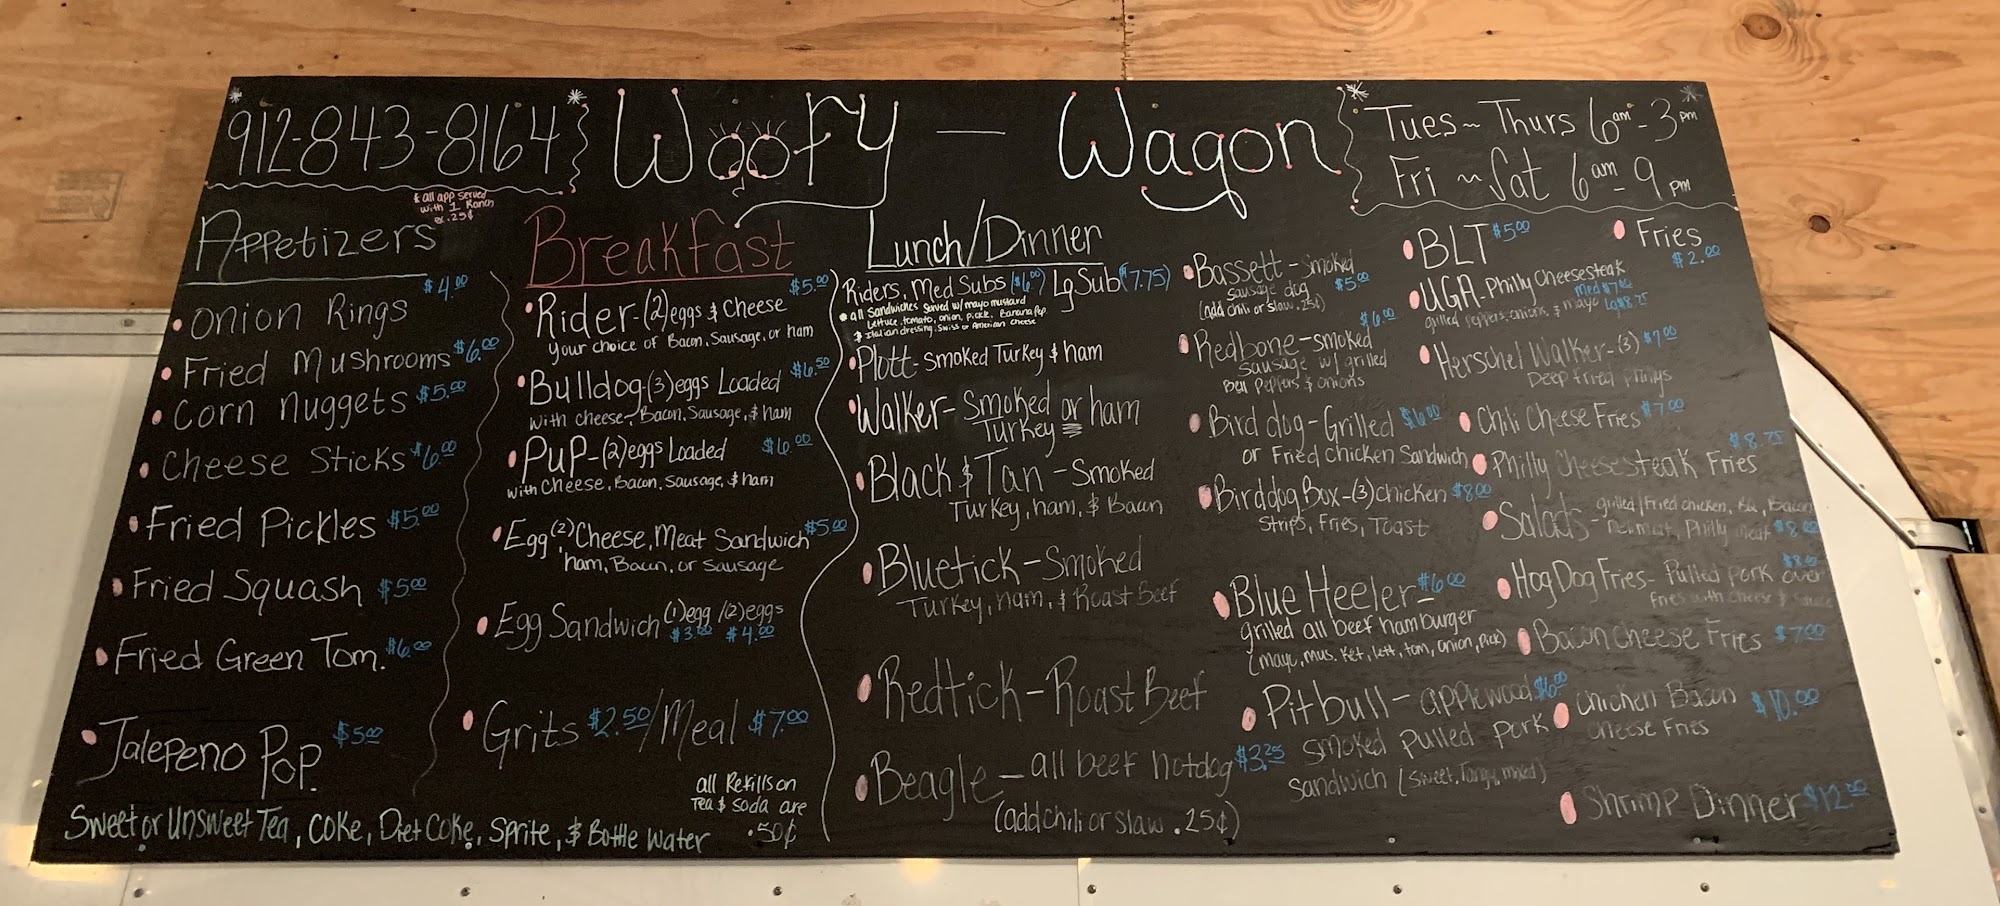 912-843-8164
Woofy — Wagon
Tues ~ Thurs 6am - 3pm
Fri ~ Sat 6am - 9pm
Appetizers
& all app served
with 1 Ranch
ex .25¢
Onion Rings $4.00
Fried Mushrooms $6.00
Corn nuggets $5.00
Cheese Sticks $6.00
Fried Pickles $5.00
Fried Squash $5.00
Fried Green Tom. $6.00
Jalepeno Pop. $5.00
Sweet or Unsweet Tea, Coke, Diet Coke, Sprite, & Bottle Water
Breakfast
Rider-(2)eggs & Cheese $5.00
your choice of Bacon, Sausage, or ham
Bulldog-(3)eggs Loaded $6.50
with cheese, Bacon, Sausage, & ham
Pup-(2)eggs Loaded $6.00
with Cheese, Bacon, Sausage, & ham
Egg(2) Cheese, Meat Sandwich $5.00
ham, Bacon, or Sausage
Egg Sandwich (1)egg /(2)eggs
$3.00 $4.00
Grits $2.50/Meal $7.00
all Refills on
Tea & Soda are
.50¢
Lunch/Dinner
Riders, Med Subs ($6.00) Lg Sub ($7.75)
all Sandwiches Served w/ mayo mustard
Lettuce, tomato, onion, pickle, Banana Pep
& Italian dressing, Swiss or American Cheese
Plott-smoked Turkey & ham
Walker-Smoked or ham
Turkey
Black & Tan - Smoked
Turkey, ham, & Bacon
Bluetick-Smoked
Turkey, ham, & Roast Beef
Redtick-Roast Beef
Beagle - all beef hotdog $3.25
(add chili or slaw .25¢)
Bassett-Smoked
Sausage dog $5.00
(add chili or slaw .25¢)
$6.00
Redbone-smoked
Sausage w/ grilled
Bell Peppers & onions
Bird dog-Grilled $6.00
or Fried chicken Sandwich
Birddog Box-(3)chicken $8.00
Strips, Fries, Toast
Blue Heeler- $6.00
grilled all beef hamburger
(mayo, mus. Ket, lett, tom, onion, pick)
Pitbull-applewood $6.00
smoked pulled pork
Sandwich (Sweet, Tangy, mixed)
BLT $5.00
UGA-Philly Cheesesteak
Med $7.00
grilled peppers, onions, & mayo Lg $8.75
Herschel Walker-(3) $7.00
Deep fried phillys
Chili Cheese Fries $7.00
$8.75
Philly Cheesesteak Fries
Salads- grilled/Fried chicken,
Philly meat $8.00
$8.00
Hog Dog Fries- Pulled pork over
fries with cheese & sauce
Bacon Cheese Fries $7.00
Chicken Bacon
Cheese Fries $10.00
Shrimp Dinner $12.00
Fries
$2.00